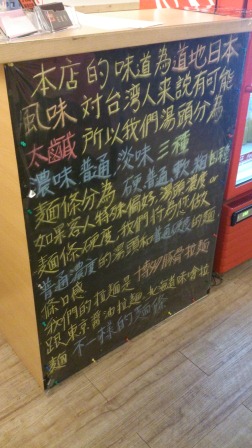 本店的味道為道地日本
風味 對台灣人來說有可能
太鹹 所以我們湯頭分為
濃味 普通 淡味 三種
麵條分為 硬 普通 軟 麵
如果客人特殊偏好 湯頭濃度
麵條硬度 我們行為您做
普通濃度的湯頭和普通硬度的麵
條口感
我們的拉麵是 博多豚骨拉麵
跟 東京醬油拉麵 北海道味噌拉
麵 不一樣的麵條